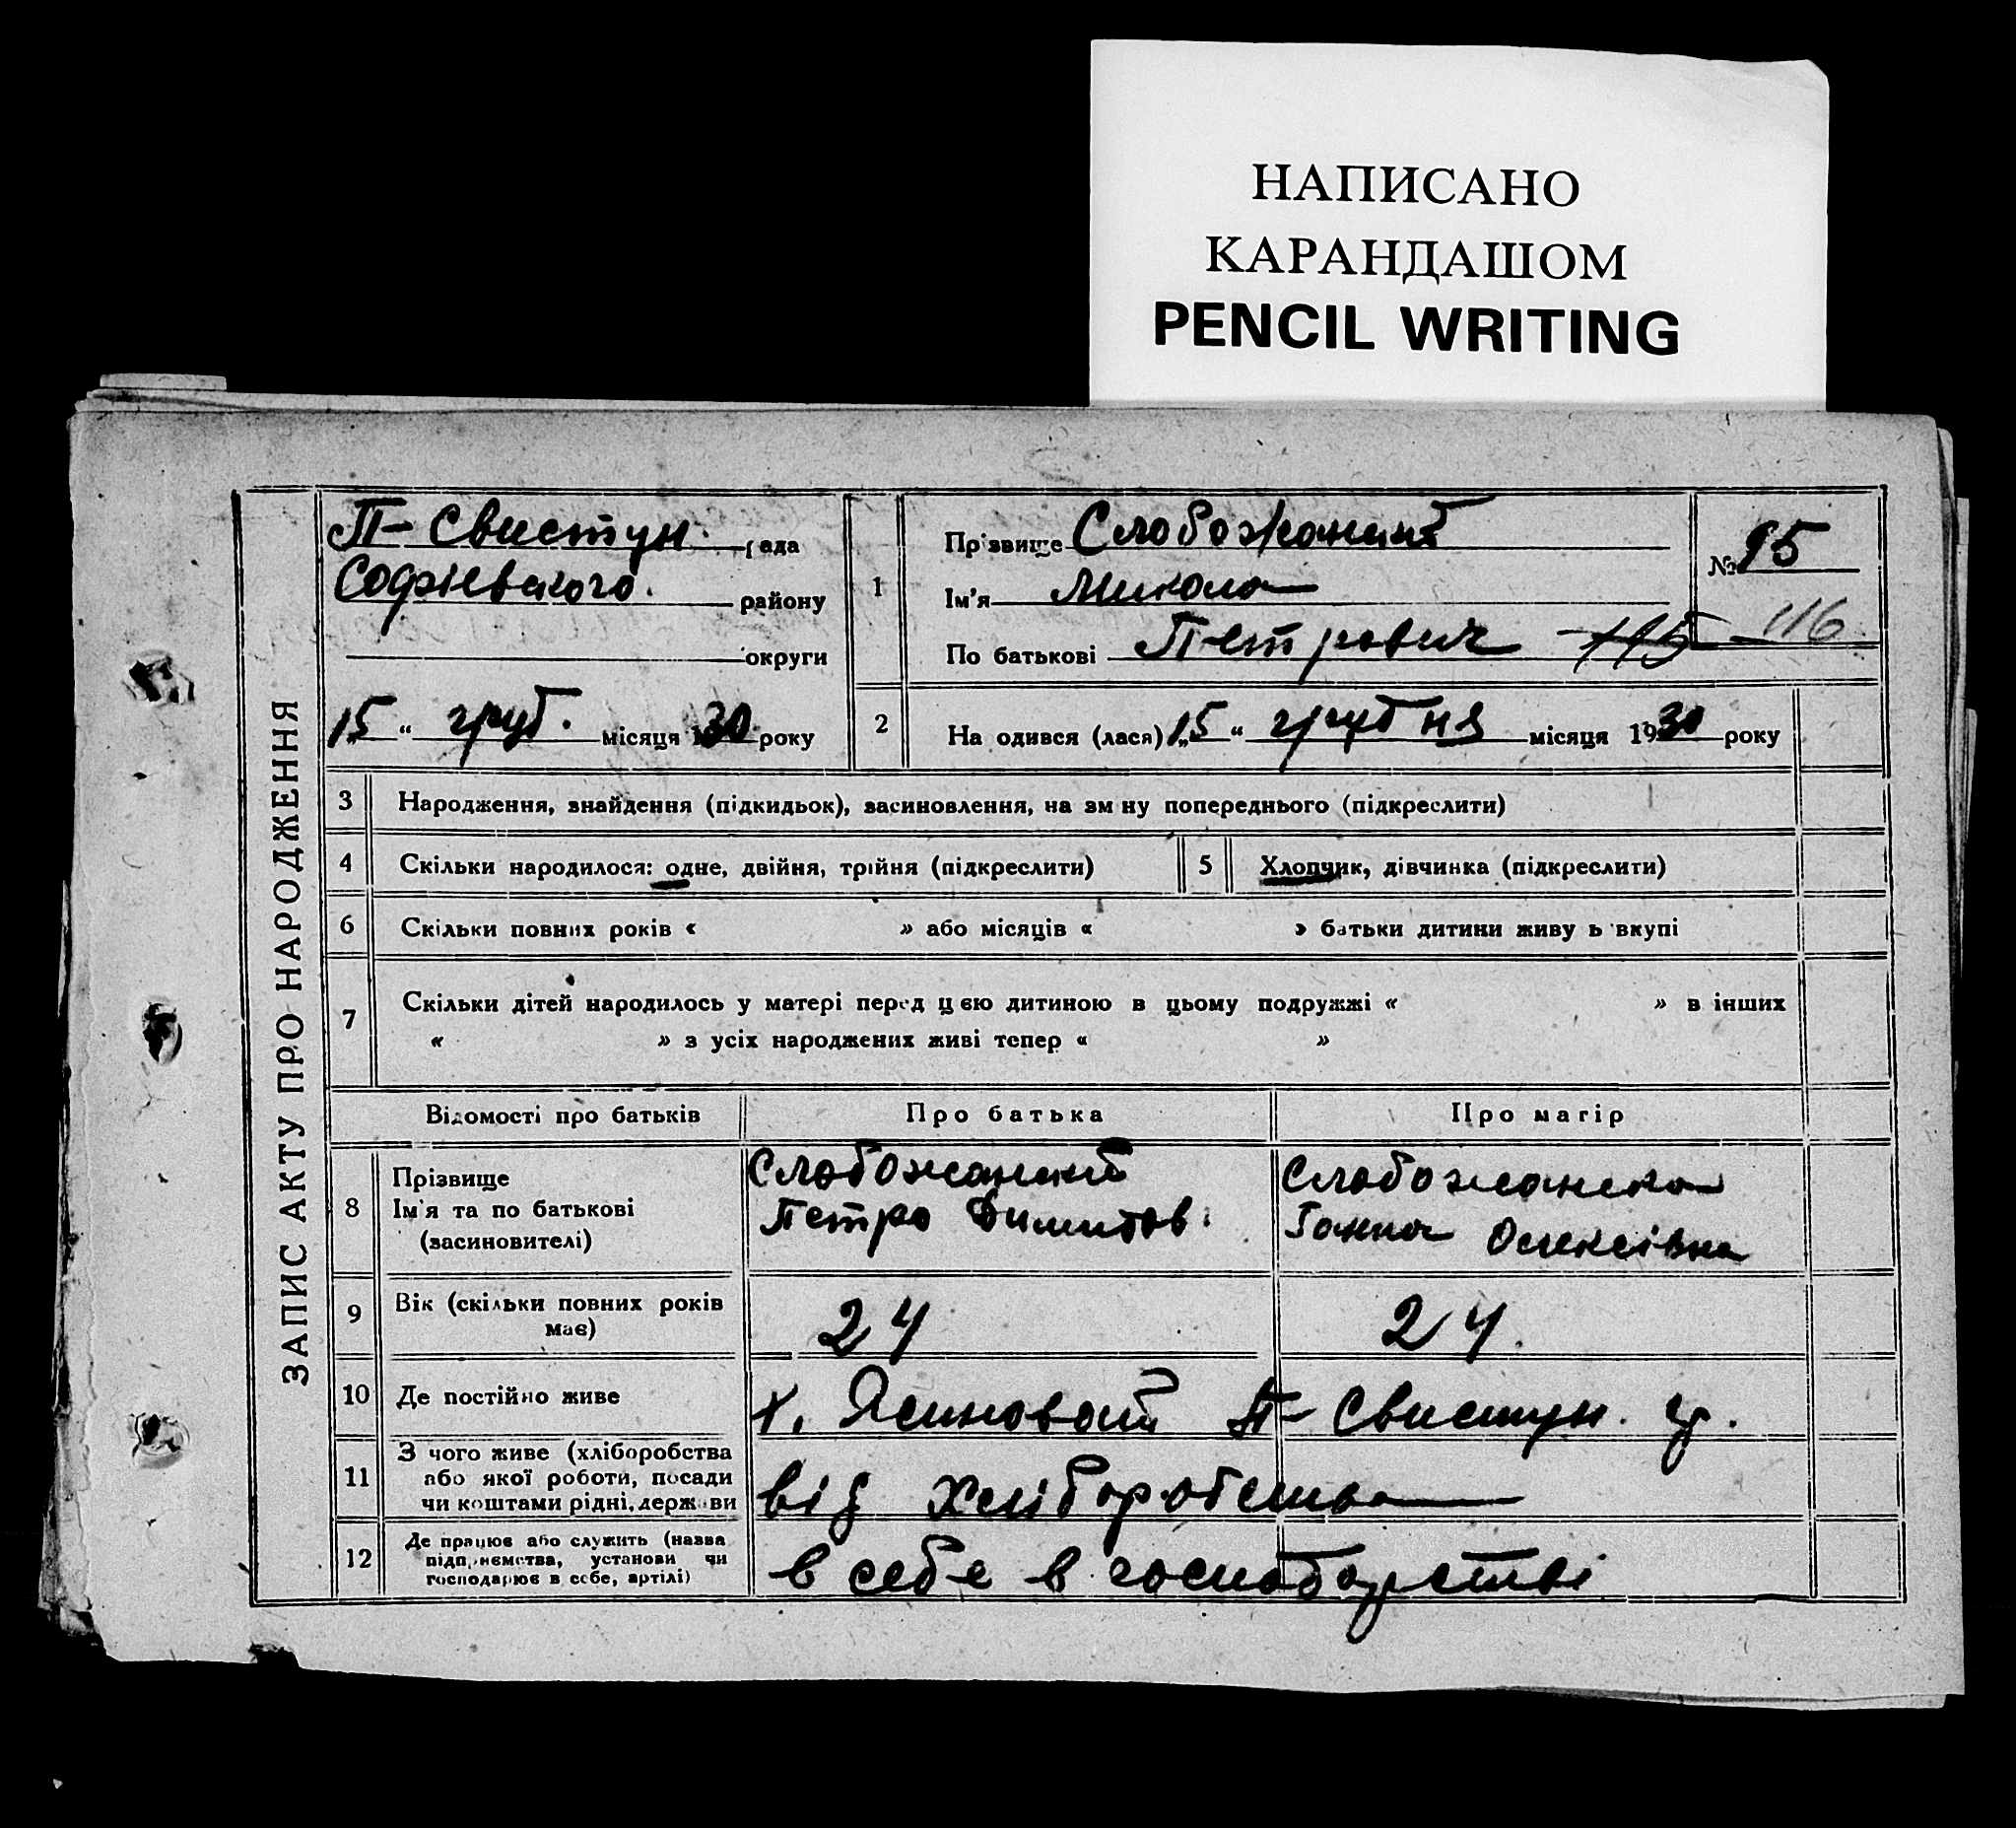 НАПИСАНО
КАРАНДАШОМ
PENCIL WRITING
ЗАПИС АКТУ ПРО НАРОДЖЕННЯ
П- Свистун. рада
Софиевського. району
округи
„15 “ груд. місяця 1930 року
1
Прізвище Слобожаний
Ім'я Микола
По батькові Петрович 115
№ 95
116
2 На одився (лася) „15 “ грудня місяця 1930 року
3 Народження, знайдення (підкидьок), засиновлення, на зм ну попереднього (підкреслити)
4 Скільки народилося: одне, двійня, трійня (підкреслити) 5 Хлопчик, дівчинка (підкреслити)
6 Скільки повних років « » або місяців « » батьки дитини живу ь вкупі
7 Скільки дітей народилось у матері перед цєю дитиною в цьому подружжі « » в інших
« » з усіх народжених живі тепер « »
Відомості про батьків Про батька Про матір
8 Прізвище
Ім'я та по батькові
(засиновителі)
Слобожаний
Петро
Слобожанська
Ганна Олексівна
9 Вік (скільки повних років
має)
24 24.
10 Де постійно живе х. Ясиновай П- Свистун.
11 З чого живе (хліборобства
або якої роботи, посади
чи коштами рідні, держави
від хліборобства
12 Де працює або служить (назва
підприємства, установи чи
господарює в себе, артілі)
в себе в господарстві